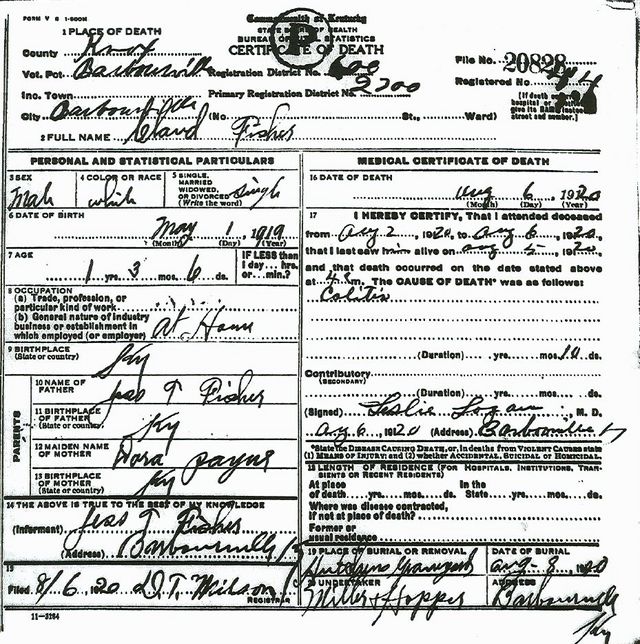 FORM V S 1-500M
Commonwealth of Kentucky
STATE BOARD OF HEALTH
BUREAU OF VITAL STATISTICS
CERTIFICATE OF DEATH
1 PLACE OF DEATH
County Knox
Vot. Pct. Barbourville Registration District No. 600
Inc. Town Primary Registration District No. 2700
City Barbourville (No. St., Ward)
File No. 20828
Registered No.
[If death hospital or give its NAME instead street and number.]
2 FULL NAME Claud Fisher
PERSONAL AND STATISTICAL PARTICULARS
3 SEX Male
4 COLOR OR RACE white
5 SINGLE, MARRIED WIDOWED, OR DIVORCED (Write the word) Single
6 DATE OF BIRTH May 1, 1919
(Month) (Day) (Year)
7 AGE 1 yrs. 3 mos. 6 ds.
IF LESS than 1 day... hrs. or... min.?
8 OCCUPATION
(a) Trade, profession, or particular kind of work
(b) General nature of industry business or establishment in which employed (or employer) At Home
9 BIRTHPLACE (State or country) Ky
PARENTS
10 NAME OF FATHER Jess T Fisher
11 BIRTHPLACE OF FATHER (State or country) Ky
12 MAIDEN NAME OF MOTHER Dora Payne
13 BIRTHPLACE OF MOTHER (State or country) Ky
14 THE ABOVE IS TRUE TO THE BEST OF MY KNOWLEDGE
(Informant) Jess T Fisher
(Address) Barbourville Ky
15
Filed 8/6, 1920 D.T. Wilson
REGISTRAR
MEDICAL CERTIFICATE OF DEATH
16 DATE OF DEATH
Aug 6, 1920
(Month) (Day) (Year)
17 I HEREBY CERTIFY, That I attended deceased
from Aug 2, 1920, to Aug 6, 1920,
that I last saw him alive on Aug 5, 1920,
and that death occurred on the date stated above
at 4 m. The CAUSE OF DEATH* was as follows:
Colitis
(Duration) yrs. mos. 10 ds.
Contributory
(SECONDARY)
(Duration) yrs. mos. ds.
(Signed) Leslie Logan, M. D.
Aug 6, 1920 (Address) Barbourville Ky
*State the DISEASE CAUSING DEATH, or, in deaths from VIOLENT CAUSES state (1) MEANS OF INJURY; and (2) whether ACCIDENTAL, SUICIDAL or HOMICIDAL.
18 LENGTH OF RESIDENCE (FOR HOSPITALS, INSTITUTIONS, TRANSIENTS OR RECENT RESIDENTS)
At place of death yrs. mos. ds. In the State yrs. mos. ds.
Where was disease contracted, If not at place of death?
Former or usual residence
19 PLACE OF BURIAL OR REMOVAL
Graveyard
DATE OF BURIAL
Aug 8, 1920
20 UNDERTAKER
Miller & Hopper
ADDRESS
Barbourville
Ky
11-3184